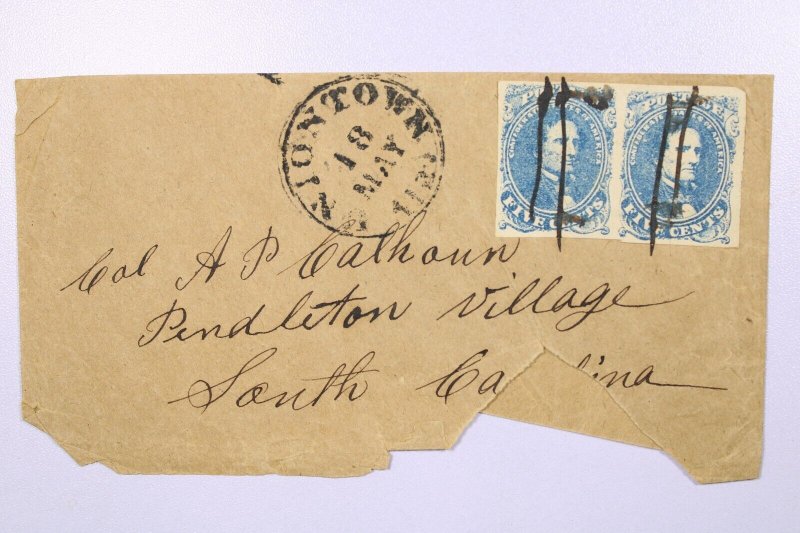 UNIONTOWN
18
MAY
POSTAGE
CONFEDERATE STATES OF AMERICA
FIVE CENTS
POSTAGE
CONFEDERATE STATES OF AMERICA
FIVE CENTS
Col A P Calhoun
Pendleton Village
South Ca lina